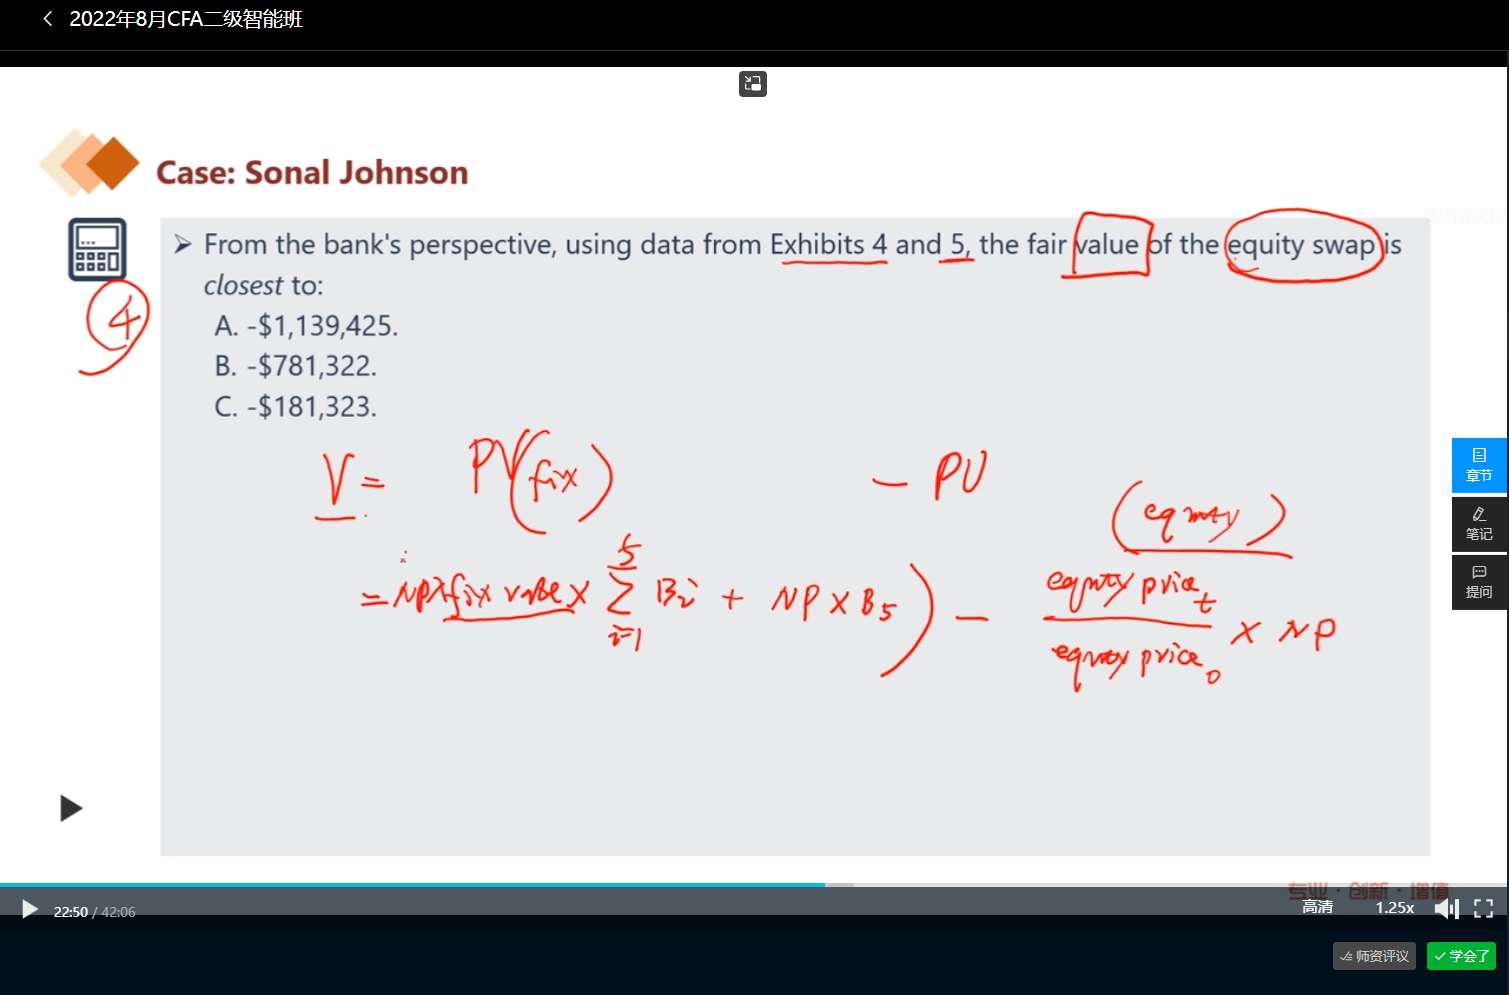 2022年8月CFA二级智能班
Case: Sonal Johnson
➢ From the bank's perspective, using data from Exhibits 4 and 5, the fair value of the equity swap is
closest to:
A. -$1,139,425.
B. -$781,322.
C. -$181,323.
4
V = PV(fix) - PV
(equity)
= NP×fix rate × 5 Σ i=1 Bi + NP × B5) - equity price t / equity price 0 × NP
章节
笔记
提问
专业·创新·增值
22:50 / 42:06
高清
1.25x
师资评议
学会了